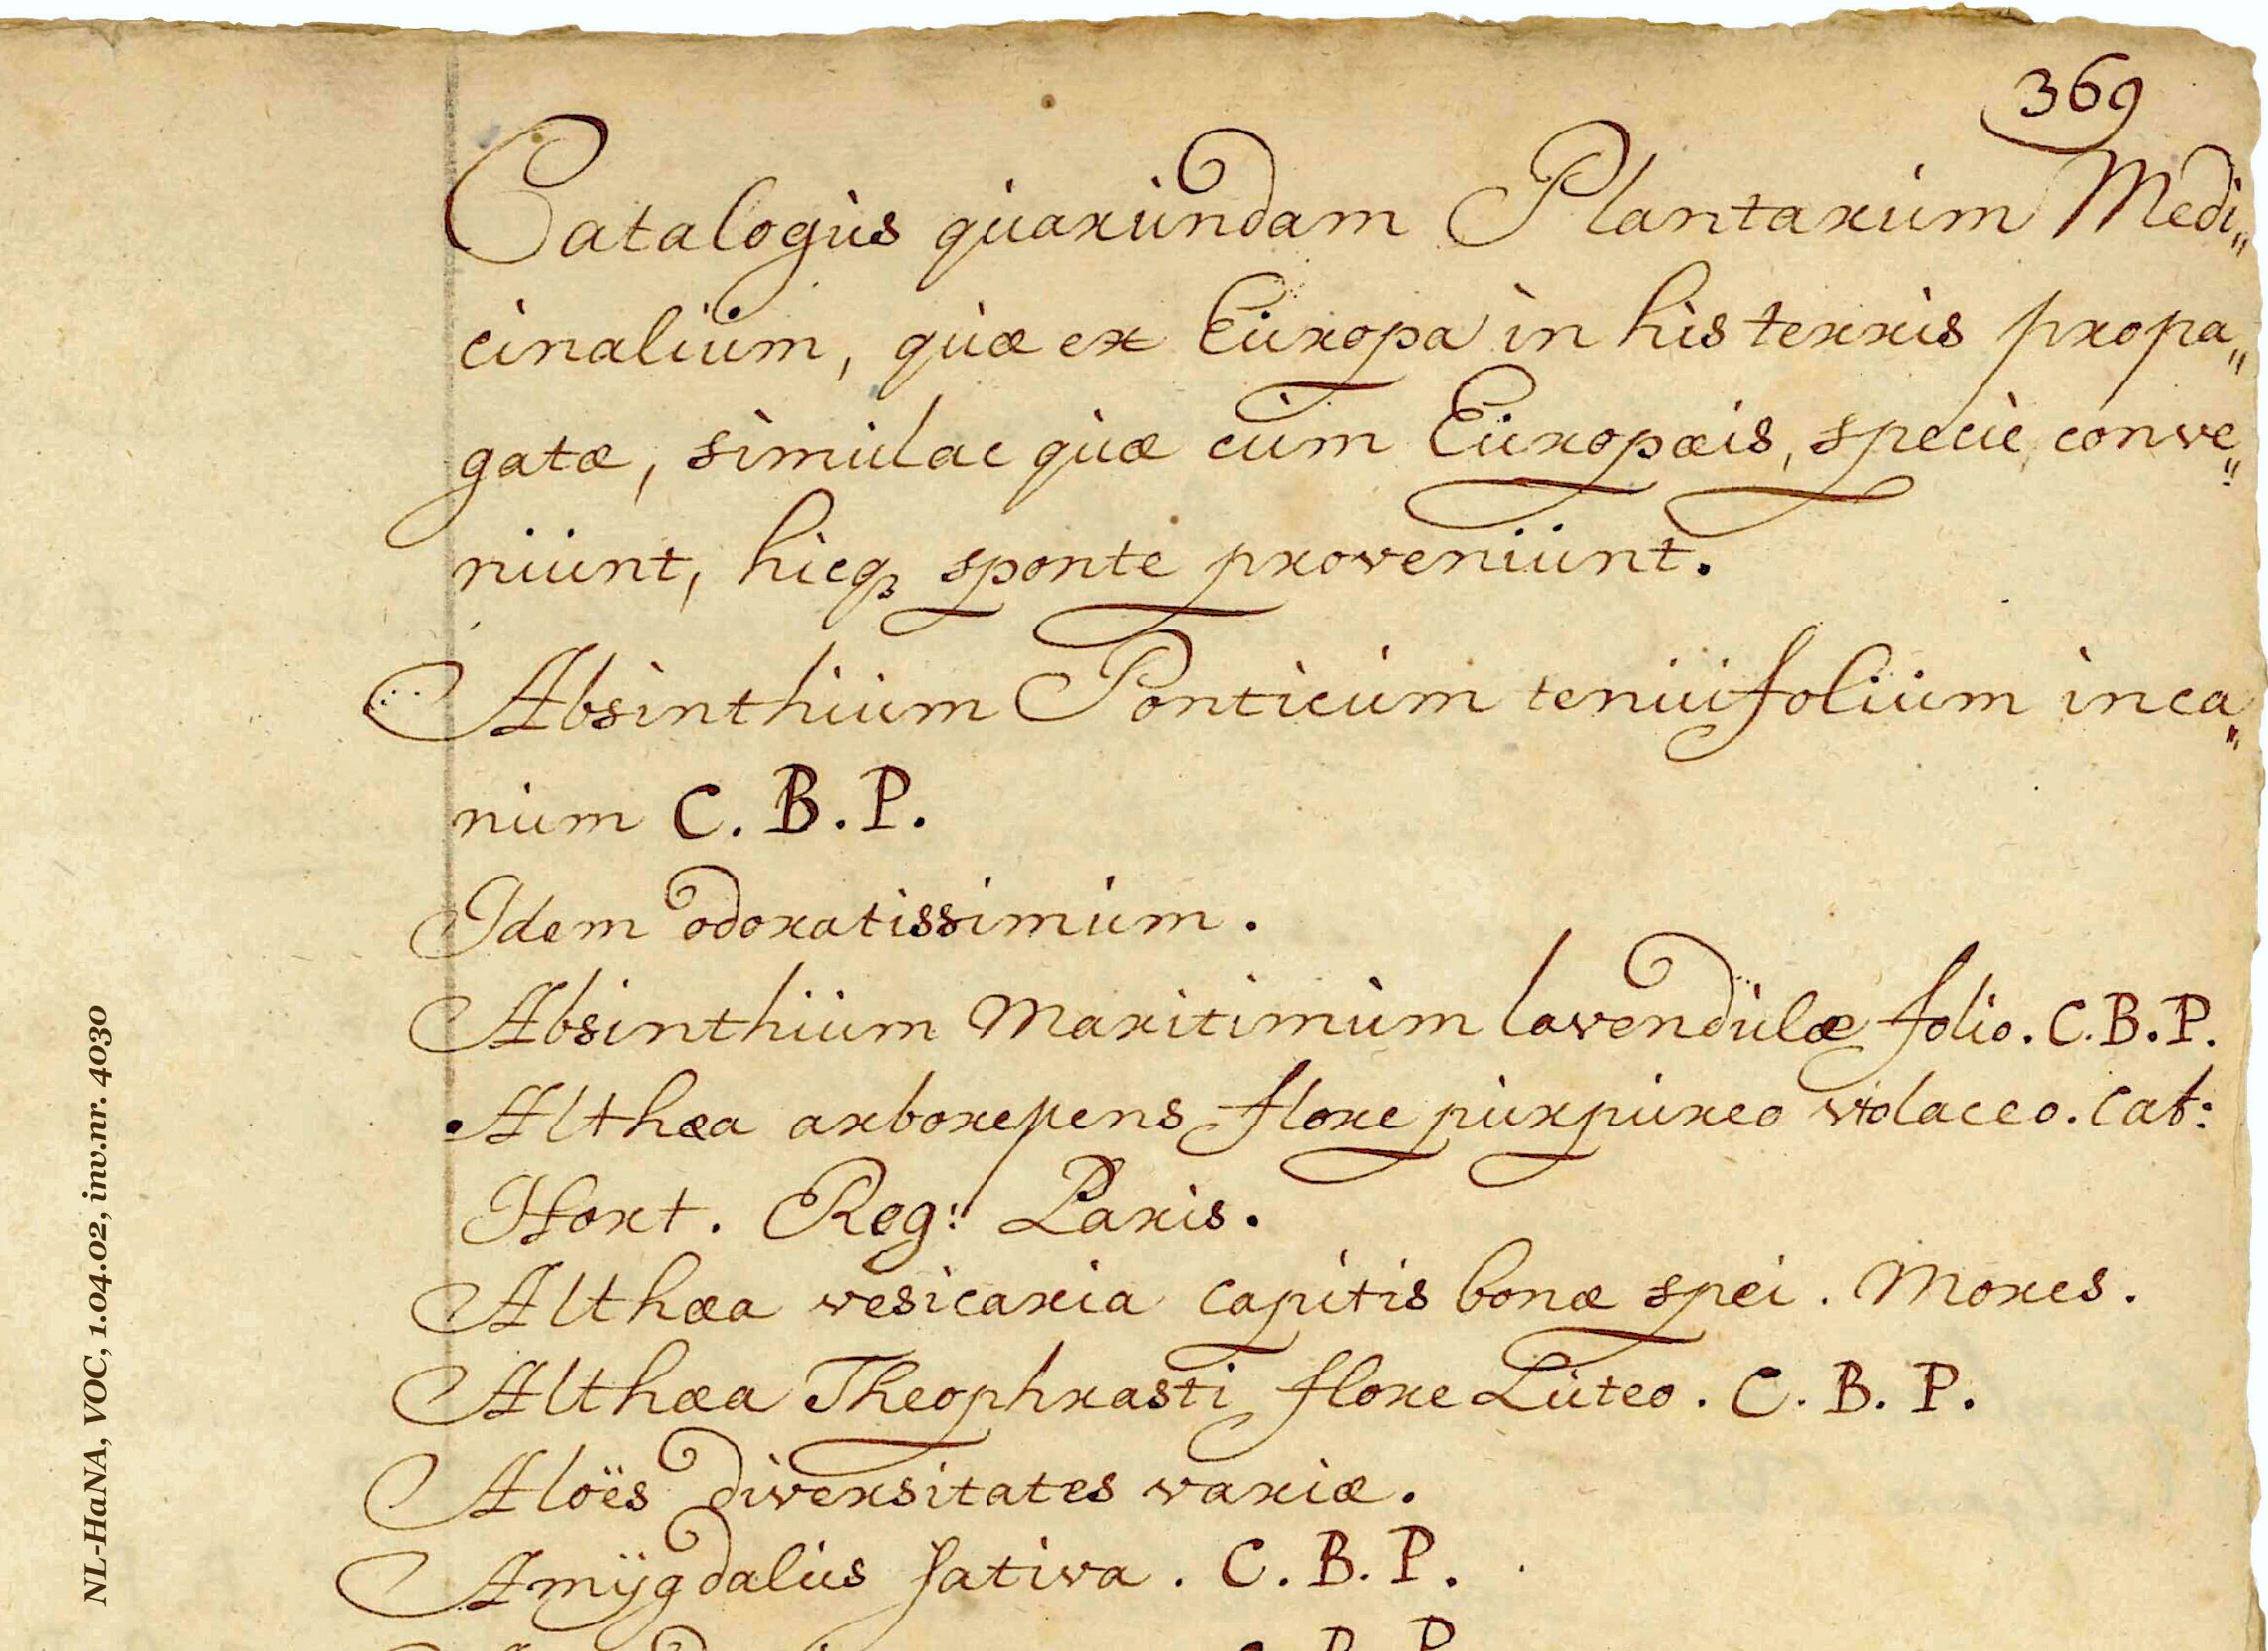 369
Catalogus quarundam Plantarum Medi„
cinalium, quæ ex Europa in his terris propa„
gatæ, simulac quæ cum Europæis, specie conve„
niunt, hicq; sponte proveniunt.
Absinthium Ponticum tenuifolium inca„
num C. B. P.
Idem odoratissimum.
Absinthium Maritimum lavendulæ folio. C. B. P.
Althæa arborepens flore purpureo violaceo. Cat:
Hort. Reg: Paris.
Althæa vesicaria capitis bonæ spei. Mores.
Althæa Theophrasti flore Luteo. C. B. P.
Aloës diversitates variæ.
Amÿgdalus sativa. C. B. P.
NL-HaNA, VOC, 1.04.02, inv.nr. 4030